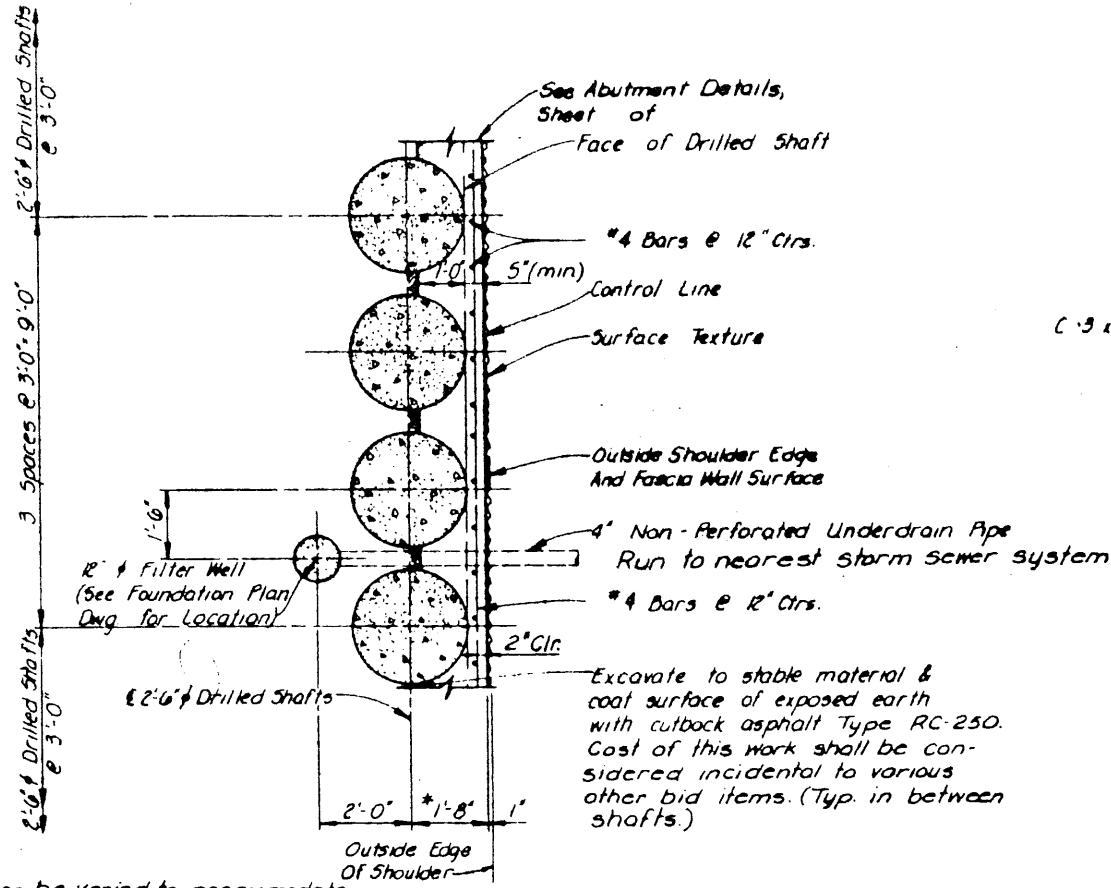 2'-6" ϕ Drilled Shafts
@ 3'-0"
3 Spaces @ 3'-0" = 9'-0"
2'-6" ϕ Drilled Shafts
@ 3'-0"
See Abutment Details,
Sheet of
Face of Drilled Shaft
#4 Bars @ 12" Ctrs.
1'-0"
5" (min)
Control Line
Surface Texture
Outside Shoulder Edge
And Fascia Wall Surface
1'-6"
4" Non-Perforated Underdrain Pipe
Run to nearest storm sewer system
12" ϕ Filter Well
(See Foundation Plan
Dwg for Location)
#4 Bars @ 12" Ctrs.
2" Clr.
℄ 2'-6" ϕ Drilled Shafts
Excavate to stable material &
coat surface of exposed earth
with cutback asphalt Type RC-250.
Cost of this work shall be con-
sidered incidental to various
other bid items. (Typ. in between
shafts.)
2'-0"
*1'-8"
1"
Outside Edge
Of Shoulder
be varied to accommodate